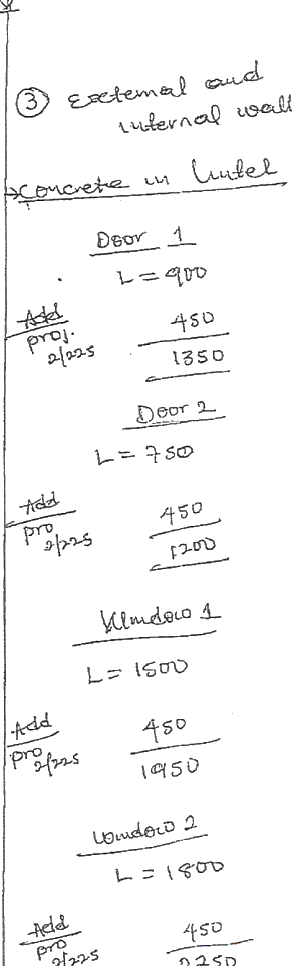 ③ External and
internal wall
→ Concrete in lintel
Door 1
L = 900
Add
proj. 2/225 450
1350
Door 2
L = 750
Add
pro 2/225 450
1200
Window 1
L = 1500
Add
pro 2/225 450
1950
Window 2
L = 1800
Add
pro 2/225 450
2250